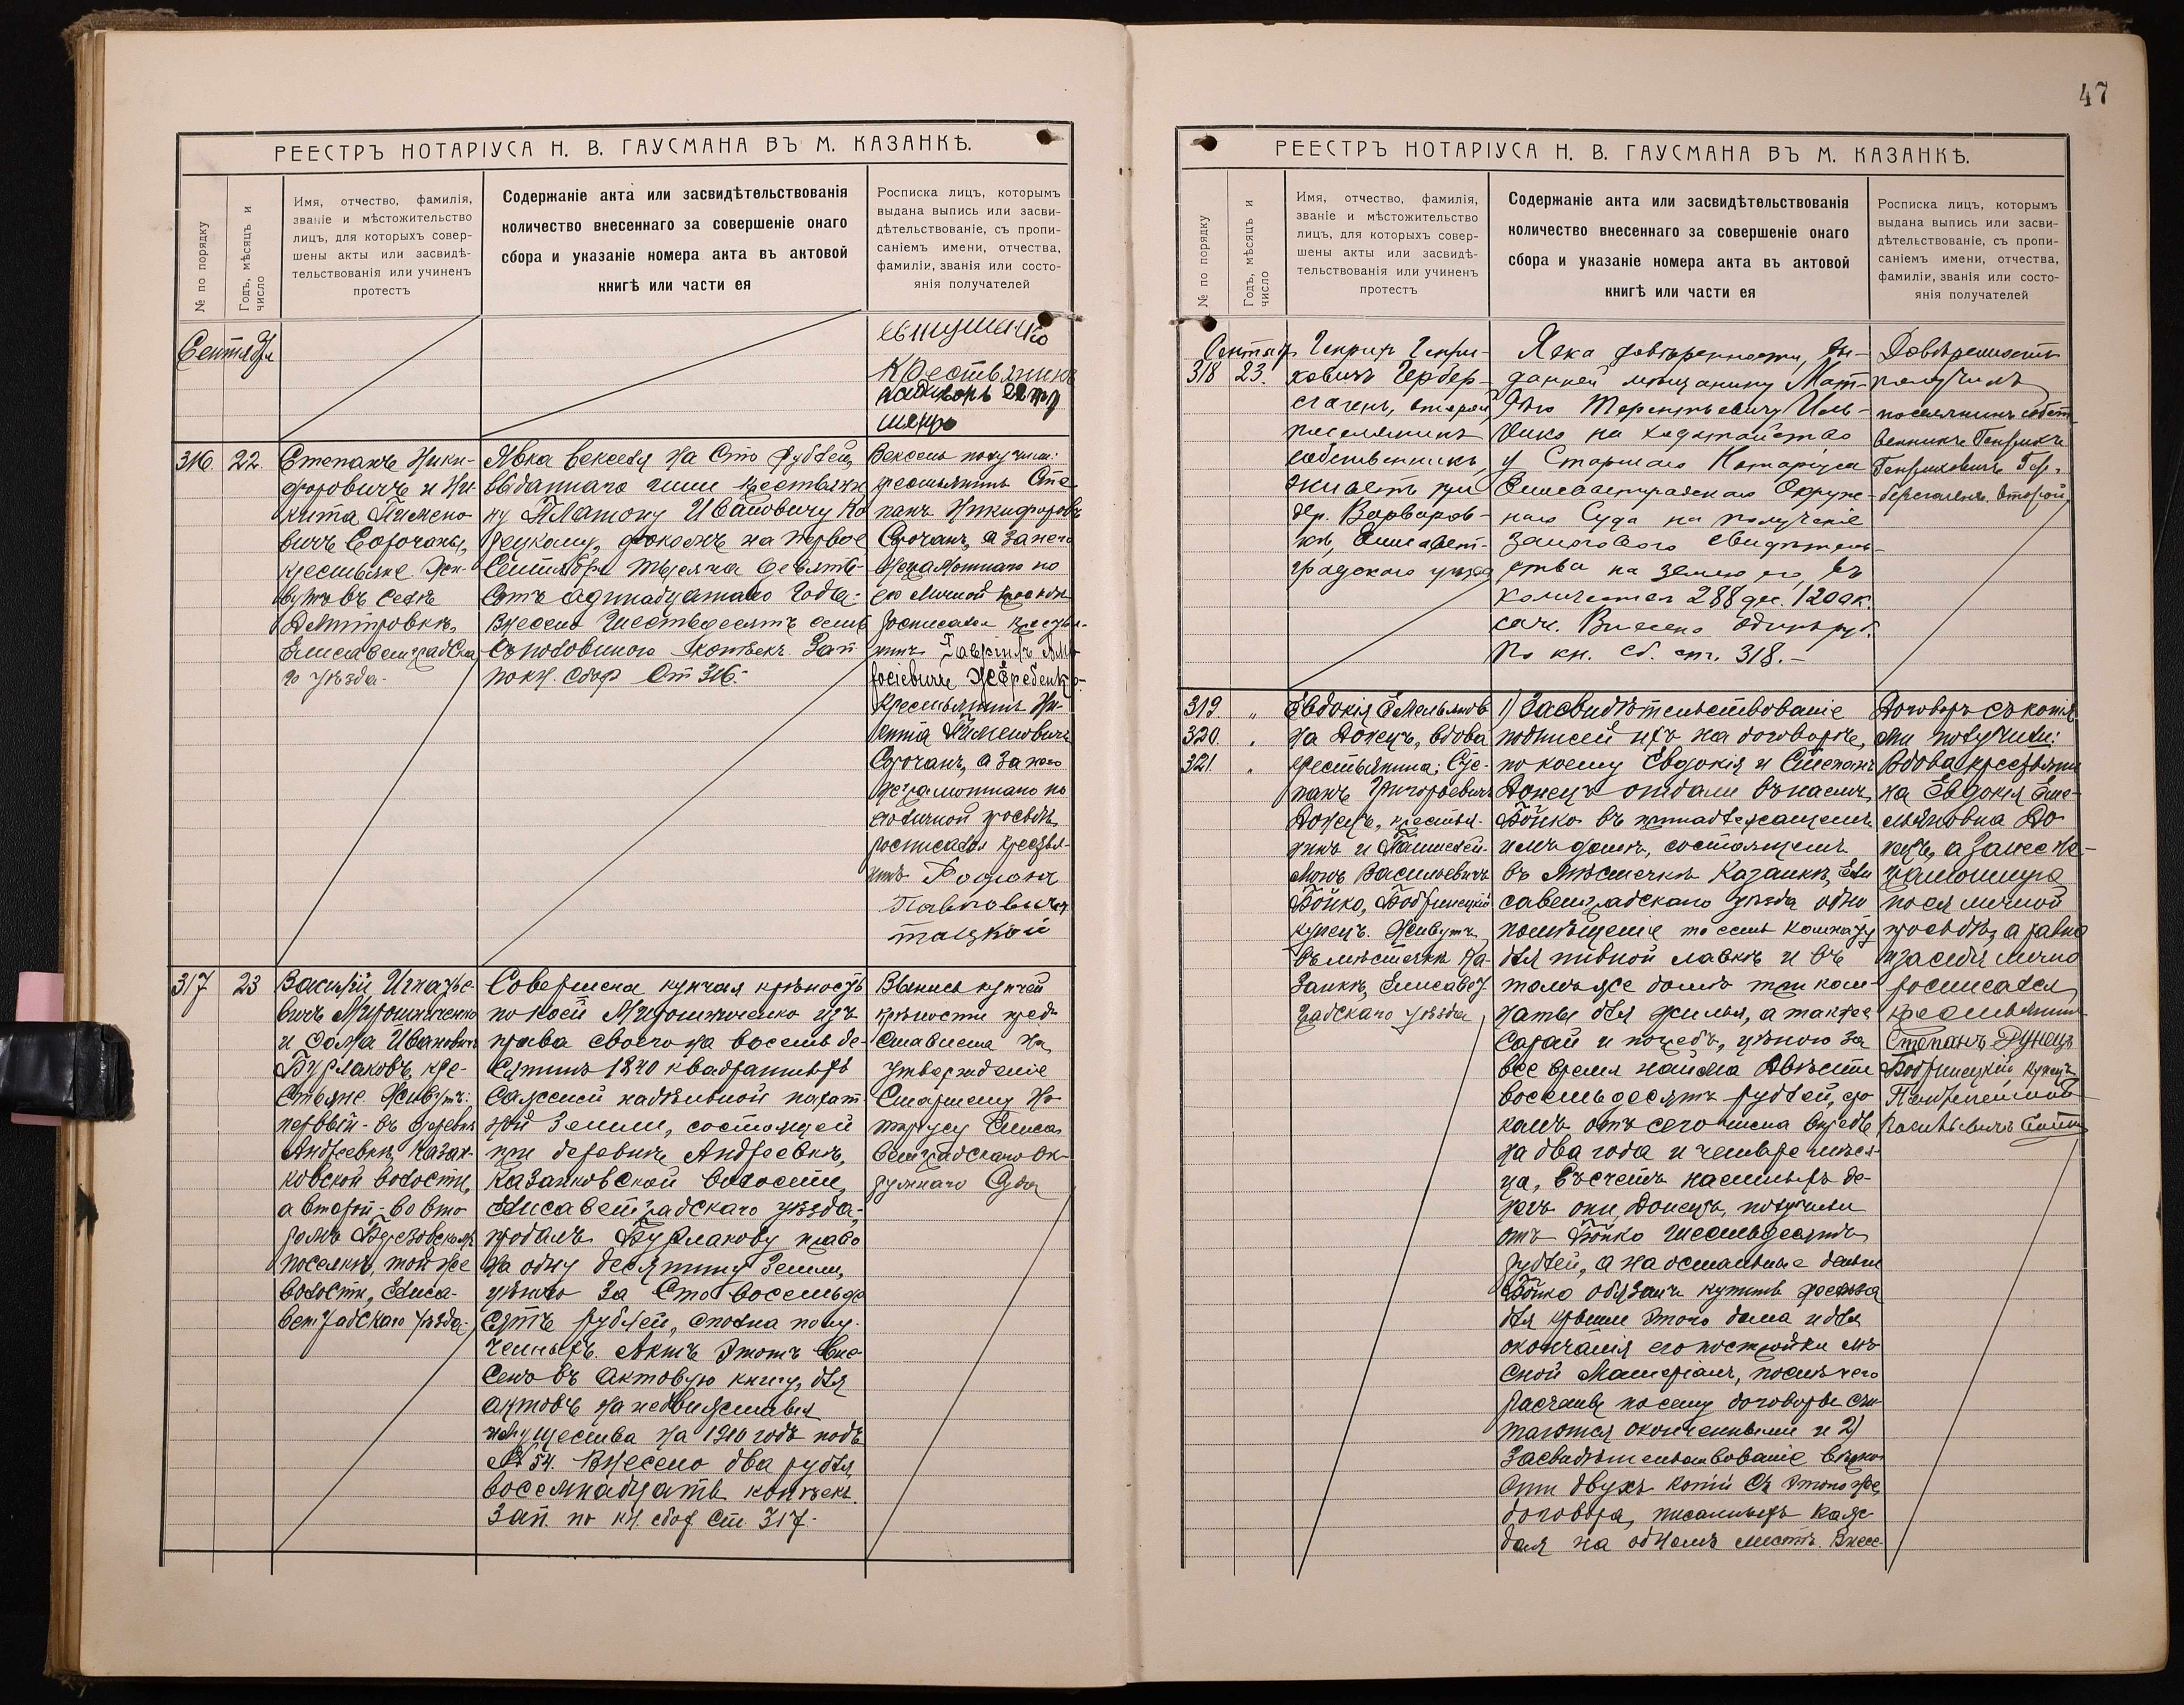 47
РЕЕСТРЪ НОТАРІУСА Н. В. ГАУСМАНА ВЪ М. КАЗАНКѢ.
№ по порядку
Годъ, мѣсяцъ и
число
Имя, отчество, фамилія,
званіе и мѣстожительство
лицъ, для которыхъ совер-
шены акты или засвидѣ-
тельствованія или учиненъ
протестъ
Содержаніе акта или засвидѣтельствованія
количество внесеннаго за совершеніе онаго
сбора и указаніе номера акта въ актовой
книгѣ или части ея
Росписка лицъ, которымъ
выдана выпись или засви-
дѣтельствованіе, съ пропи-
саніемъ имени, отчества,
фамиліи, званія или состо-
янія получателей
Сентября
Крестьянинъ
316. 22.
Степанъ Ники-
форовичъ и Ни-
кита Пимено-
вичъ Сорочаны,
крестьяне. Жи-
вутъ въ селѣ
Дмитровкѣ,
Елисаветградска-
го уѣзда.
Явка векселя на Сто рублей,
выданнаго ими крестьяни
ну Платону Ивановичу Ко
рецкому, срокомъ на первое
Сентября тысяча девять-
сотъ одинадцатаго года.
Внесено Шестьдесятъ семь
съ половиною копѣекъ. Зап
по кн. сбор Ст 316.
Вексель получили:
крестьянинъ Сте-
панъ Никифоровъ
Сорочанъ, а за него
неграмотнаго по
его личной просьбѣ
росписался крестья-
нинъ Гавріилъ
Жеребенко.
Крестьянинъ Ни-
кита Пименовичъ
Сорочанъ, а за него
неграмотнаго по
его личной просьбѣ
росписался крестья-
нинъ
Павловичъ
317 23
Василій Игнатье-
вичъ Мирошниченко
и Сама Ивановичъ
Бурлаковъ, кре-
стьяне. Живутъ:
первый - въ деревнѣ
Андреевкѣ, Казан-
ковской волости,
а второй - во вто
ромъ Березовскомъ
поселкѣ, той же
волости, Елиса-
ветградскаго уѣзда.
Совершена купчая крѣпость
по коей Мирошниченко изъ
права своего на восемь де-
сятинъ 1840 квадратныхъ
саженей надѣльной пахат
ной земли, состоящей
при деревнѣ Андреевкѣ,
Казанковской волости,
Елисаветградскаго уѣзда,
продалъ Бурлакову право
на одну десятину земли,
цѣною за Сто восемьде
сятъ рублей, сполна полу-
ченныхъ. Актъ этотъ вне
сенъ въ актовую книгу, для
актовъ на недвижимыя
имущества на 1910 годъ подъ
№ 54. Внесено два рубля,
восемнадцать копѣекъ.
Зап. по кн. сбор Ст. 317.
Выпись купчей
крѣпости пред-
ставлена на
утвержденіе
Старшему Но
таріусу Елиса
ветградскаго Ок-
ружнаго Суда
РЕЕСТРЪ НОТАРІУСА Н. В. ГАУСМАНА ВЪ М. КАЗАНКѢ.
№ по порядку
Годъ, мѣсяцъ и
число
Имя, отчество, фамилія,
званіе и мѣстожительство
лицъ, для которыхъ совер-
шены акты или засвидѣ-
тельствованія или учиненъ
протестъ
Содержаніе акта или засвидѣтельствованія
количество внесеннаго за совершеніе онаго
сбора и указаніе номера акта въ актовой
книгѣ или части ея
Росписка лицъ, которымъ
выдана выпись или засви-
дѣтельствованіе, съ пропи-
саніемъ имени, отчества,
фамиліи, званія или состо-
янія получателей
Сентяб.
318 23.
Генрихъ Генри-
ховичъ Гербер-
второй,
поселянинъ
собственникъ,
живетъ при
дер. Варваров-
кѣ, Елисавет-
градскаго уѣзда
Явка довѣренности, вы-
данной мѣщанину Мат-
Терентьевичу
на ходатайство
у Старшаго Нотаріуса
Елисаветградскаго Окруж-
наго Суда на полученіе
залогового свидѣтель-
ства на землю его, въ
количествѣ 288 дес. 1200 к.
саж. Внесено одинъ руб.
По кн. сб. ст. 318.-
Довѣренность
получилъ
поселянинъ собст
венникъ Генрихъ
Генриховичъ Гер-
второй
319. "
320. "
321. "
Евдокія Емельянов
на Донецъ, вдова
крестьянина; Сте-
панъ Григорьевичъ
Донецъ, крестья-
нинъ и Пантелей-
монъ Васильевичъ
Бойко, Бобринецкій
купецъ. Живутъ
въ мѣстечкѣ Ка-
занкѣ, Елисавет
градскаго уѣзда
1) Засвидѣтельствованіе
подписей ихъ на договорѣ,
по коему Евдокія и Степанъ
Донецъ отдали въ наемъ
Бойко въ принадлежащемъ
имъ домѣ, состоящемъ
въ Мѣстечкѣ Казанкѣ, Ели
саветградскаго уѣзда одно
помѣщеніе то есть комнату
для пивной лавки и въ
томъ же домѣ три ком-
наты для жилья, а также
сарай и погребъ, цѣною за
все время найма Двѣсти
восемьдесятъ рублей, сро
комъ отъ сего числа впредь
на два года и четыре мѣся-
ца, въ счетъ наемныхъ де-
негъ они, Донецъ, получили
отъ Бойко шестьдесятъ
рублей, а на остальные деньги
Бойко обязанъ купить желѣза
для крыши этого дома и для
окончанія его постройки лѣ-
сной матеріалъ, послѣ чего
расчеты по сему договору счи
таются оконченными и 2)
Засвидѣтельствованіе вѣрно
сти двухъ копій съ этого же,
договора, писанныхъ каж-
дая на одномъ листѣ. Внесе-
Договоръ съ копія
ми получили:
Вдова крестьяни
на Евдокія Еме-
льяновна До
нецъ, а за нее не-
грамотную
по ея личной
просьбѣ, а равно
и за себя лично
росписался
крестьянинъ
Степанъ Дунецъ
Бобринецкій купецъ